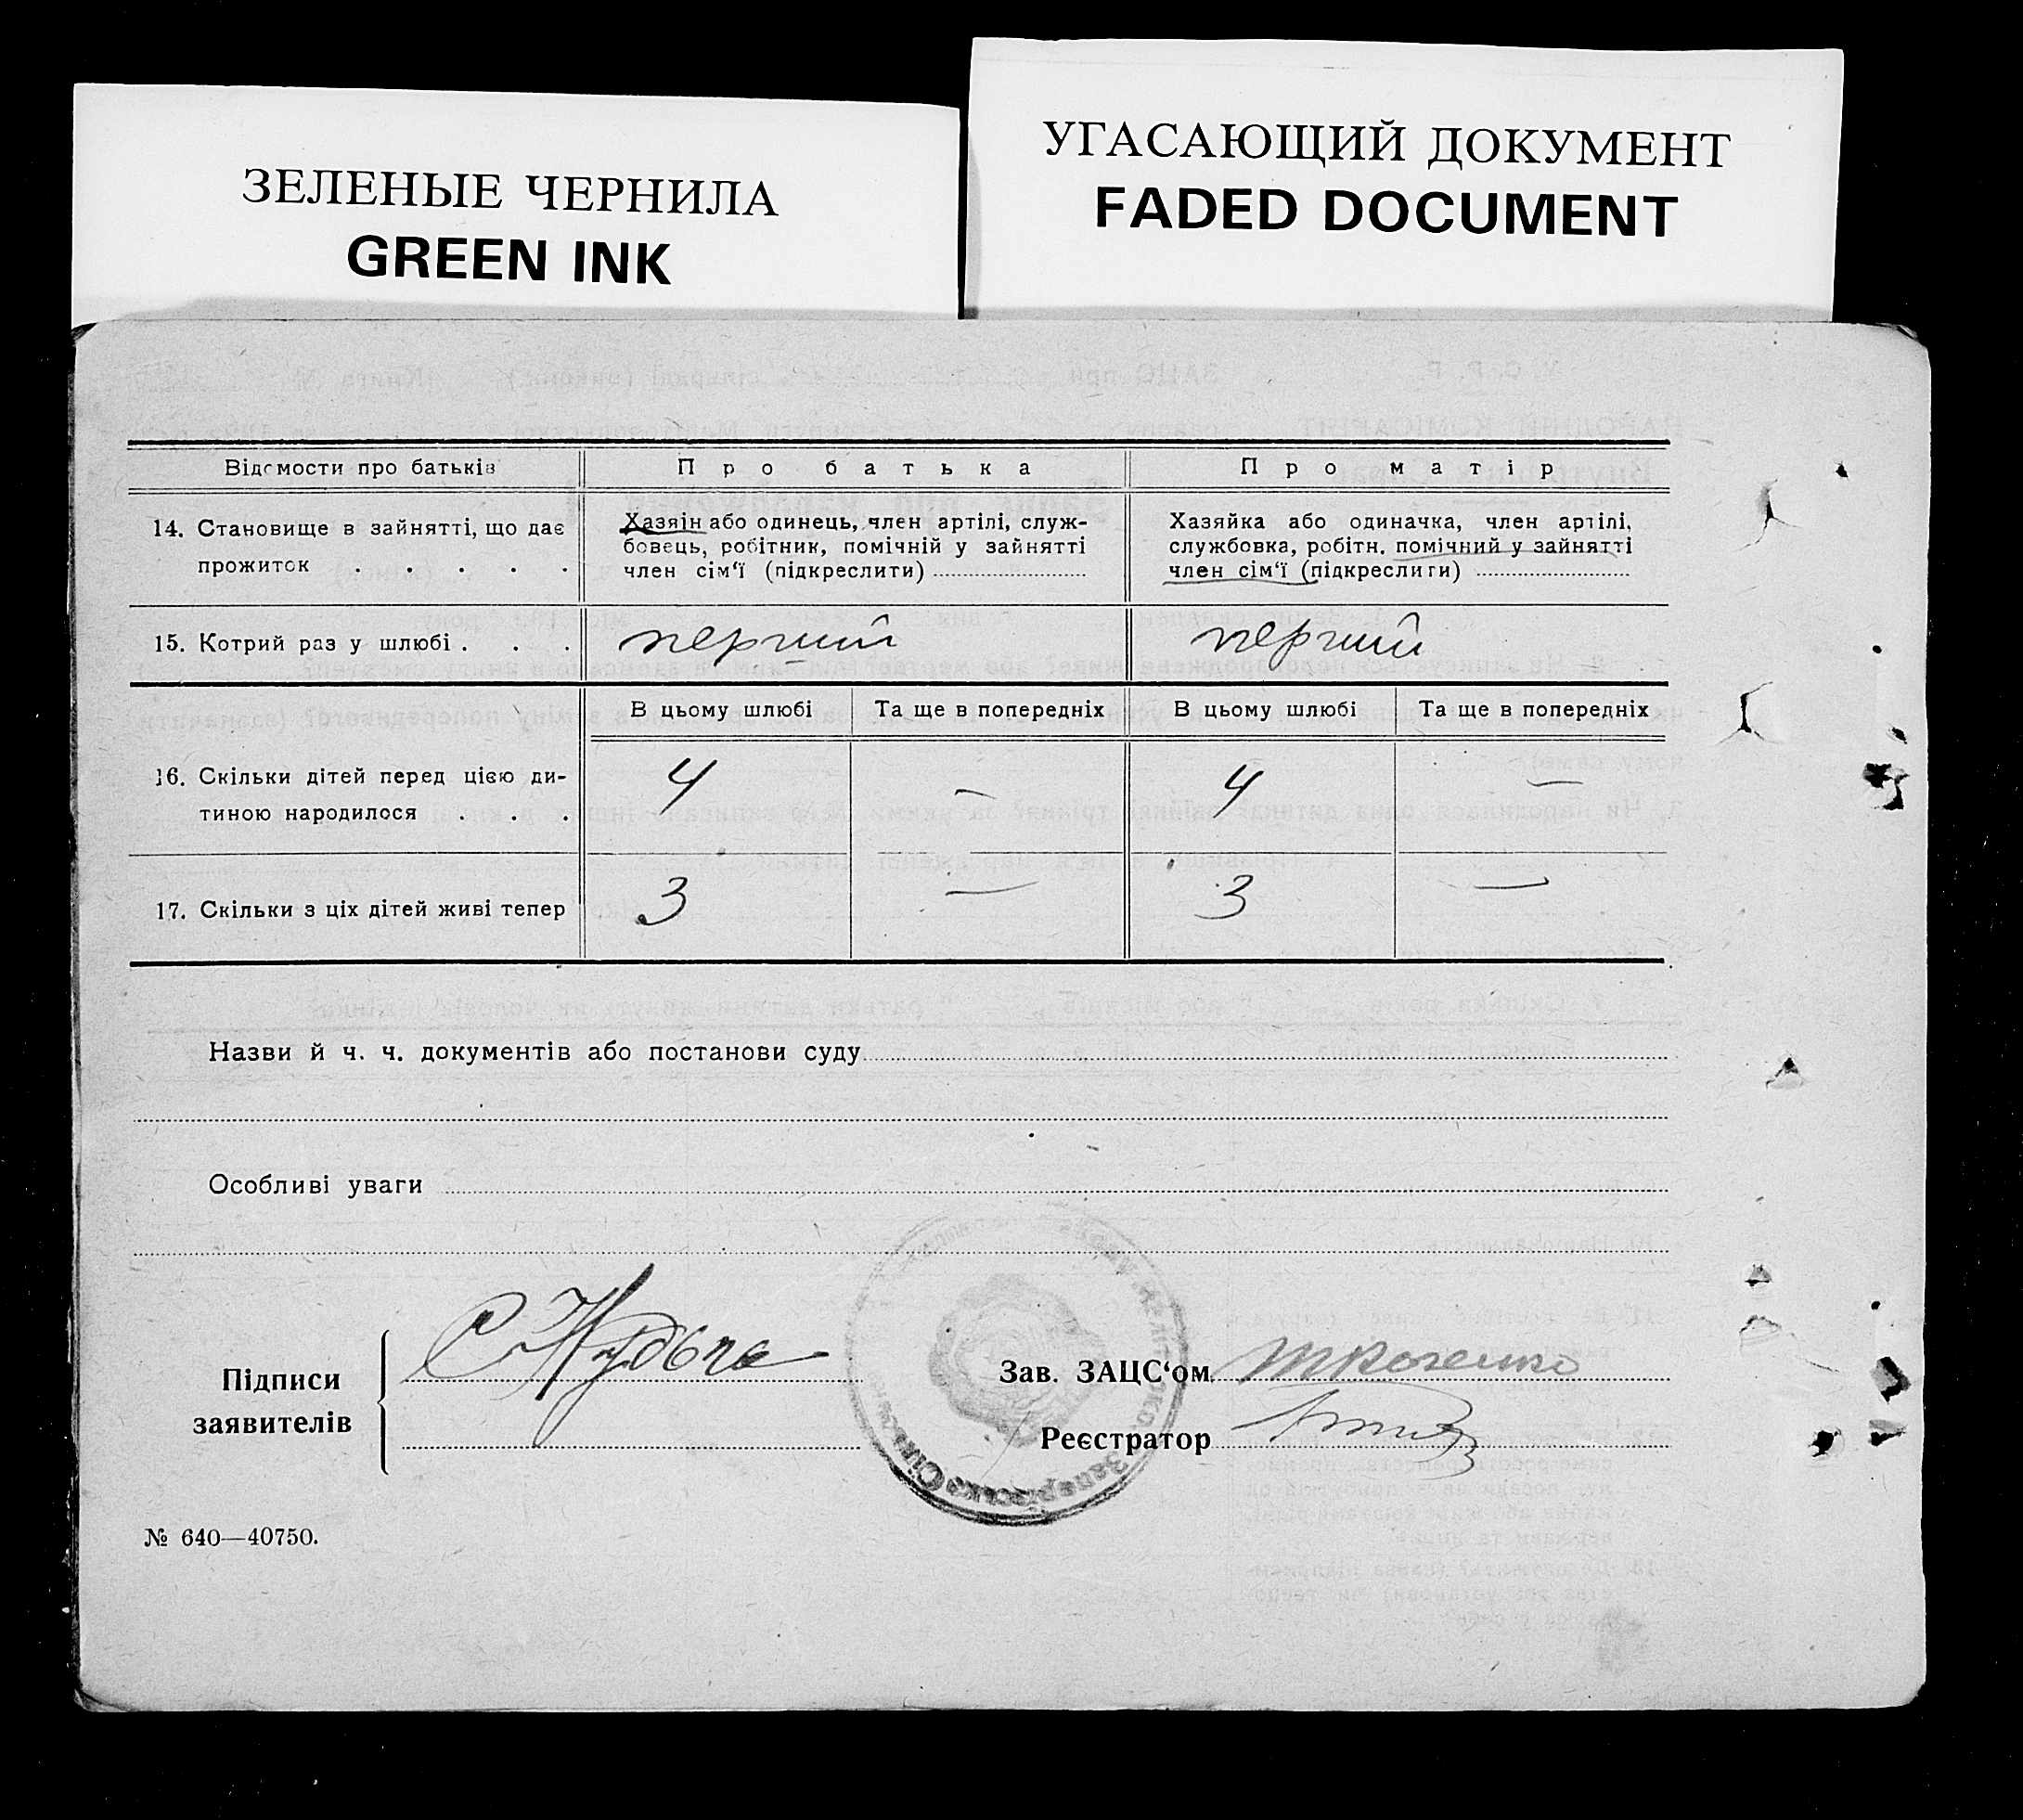 ЗЕЛЕНЫЕ ЧЕРНИЛА
GREEN INK
УГАСАЮЩИЙ ДОКУМЕНТ
FADED DOCUMENT
Відомости про батьків
Про батька
Про матір
14. Становище в зайнятті, що дає
прожиток . . . . .
Хазяїн або одинець, член артілі, служ-
бовець, робітник, помічній у зайнятті
член сім‘ї (підкреслити)
Хазяйка або одиначка, член артілі,
службовка, робітн. помічний у зайнятті
член сім‘ї (підкреслити)
15. Котрий раз у шлюбі . . .
перший
перший
В цьому шлюбі
Та ще в попередніх
В цьому шлюбі
Та ще в попередніх
16. Скільки дітей перед цією ди-
тиною народилося . . .
4
—
4
—
17. Скільки з ціх дітей живі тепер
3
—
3
—
Назви й ч. ч. документів або постанови суду
Особливі уваги
Підписи
заявителів
Зав. ЗАЦС‘ом
Реєстратор
№ 640—40750.